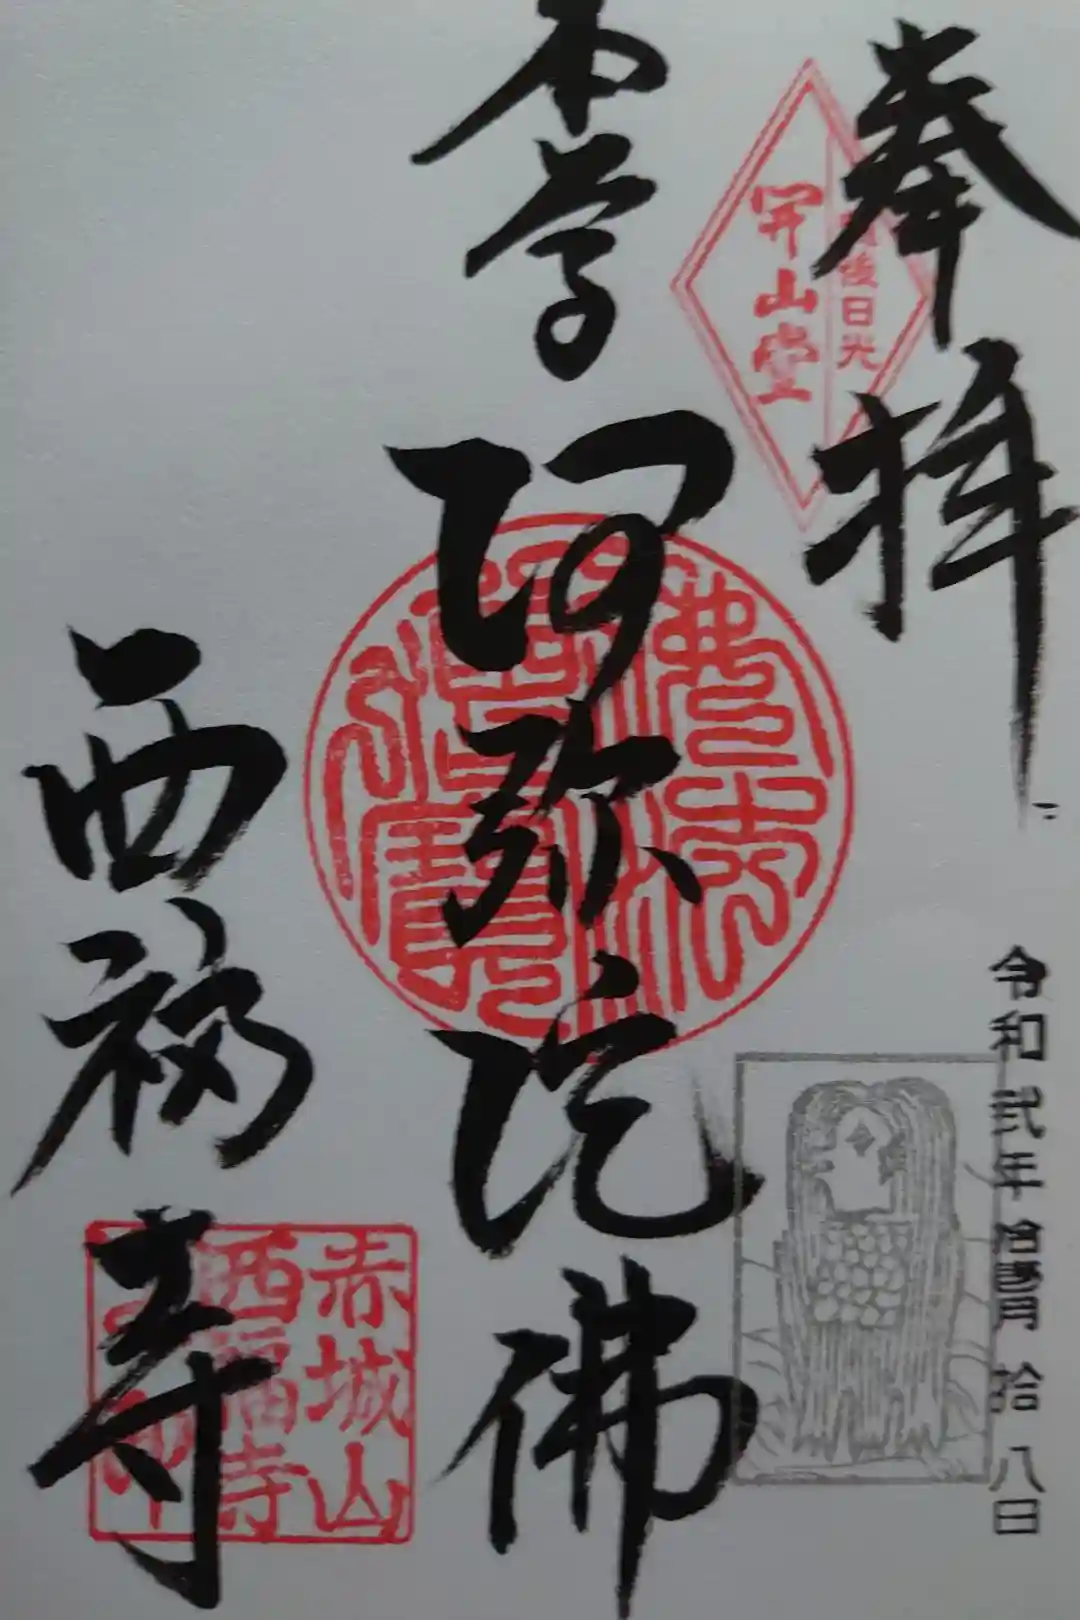 奉拝
越後日光
開山堂
令和弐年拾壹月拾八日
本尊
阿弥陀佛
佛法
僧寶
西福寺
赤城山
西福寺